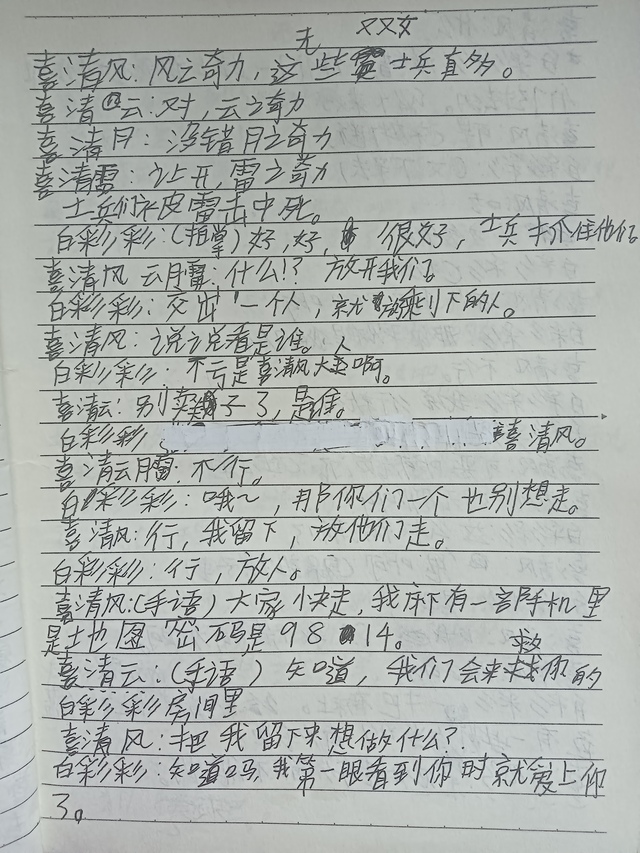 无 又又女
喜清风:风之奇力,这些士兵真多。
喜清云:对,云之奇力
喜清月:没错月之奇力
喜清雷:让开,雷之奇力
士兵们被雷击中死。
白彩彩:(拍掌)好,好,很好,士兵抓住他们
喜清风云月雷:什么!?放开我们
白彩彩:交出一个人,就放剩下的人。
喜清风:说说看是谁。人
白彩彩:不亏是喜清风大美啊。
喜清云:别卖关子了,是谁。
白彩彩 喜清风。
喜清云月雷:不行。
白彩彩:哦~,那你们一个也别想走。
喜清风:行,我留下,放他们走。
白彩彩:行,放人。
喜清风:(手语)大家快走,我床下有一部手机里
是地图密码是9814。 救
喜清云:(手语)知道,我们会来找你的
白彩彩房间里
喜清风:把我留下来想做什么?
白彩彩:知道吗,我第一眼看到你时就爱上你
了。